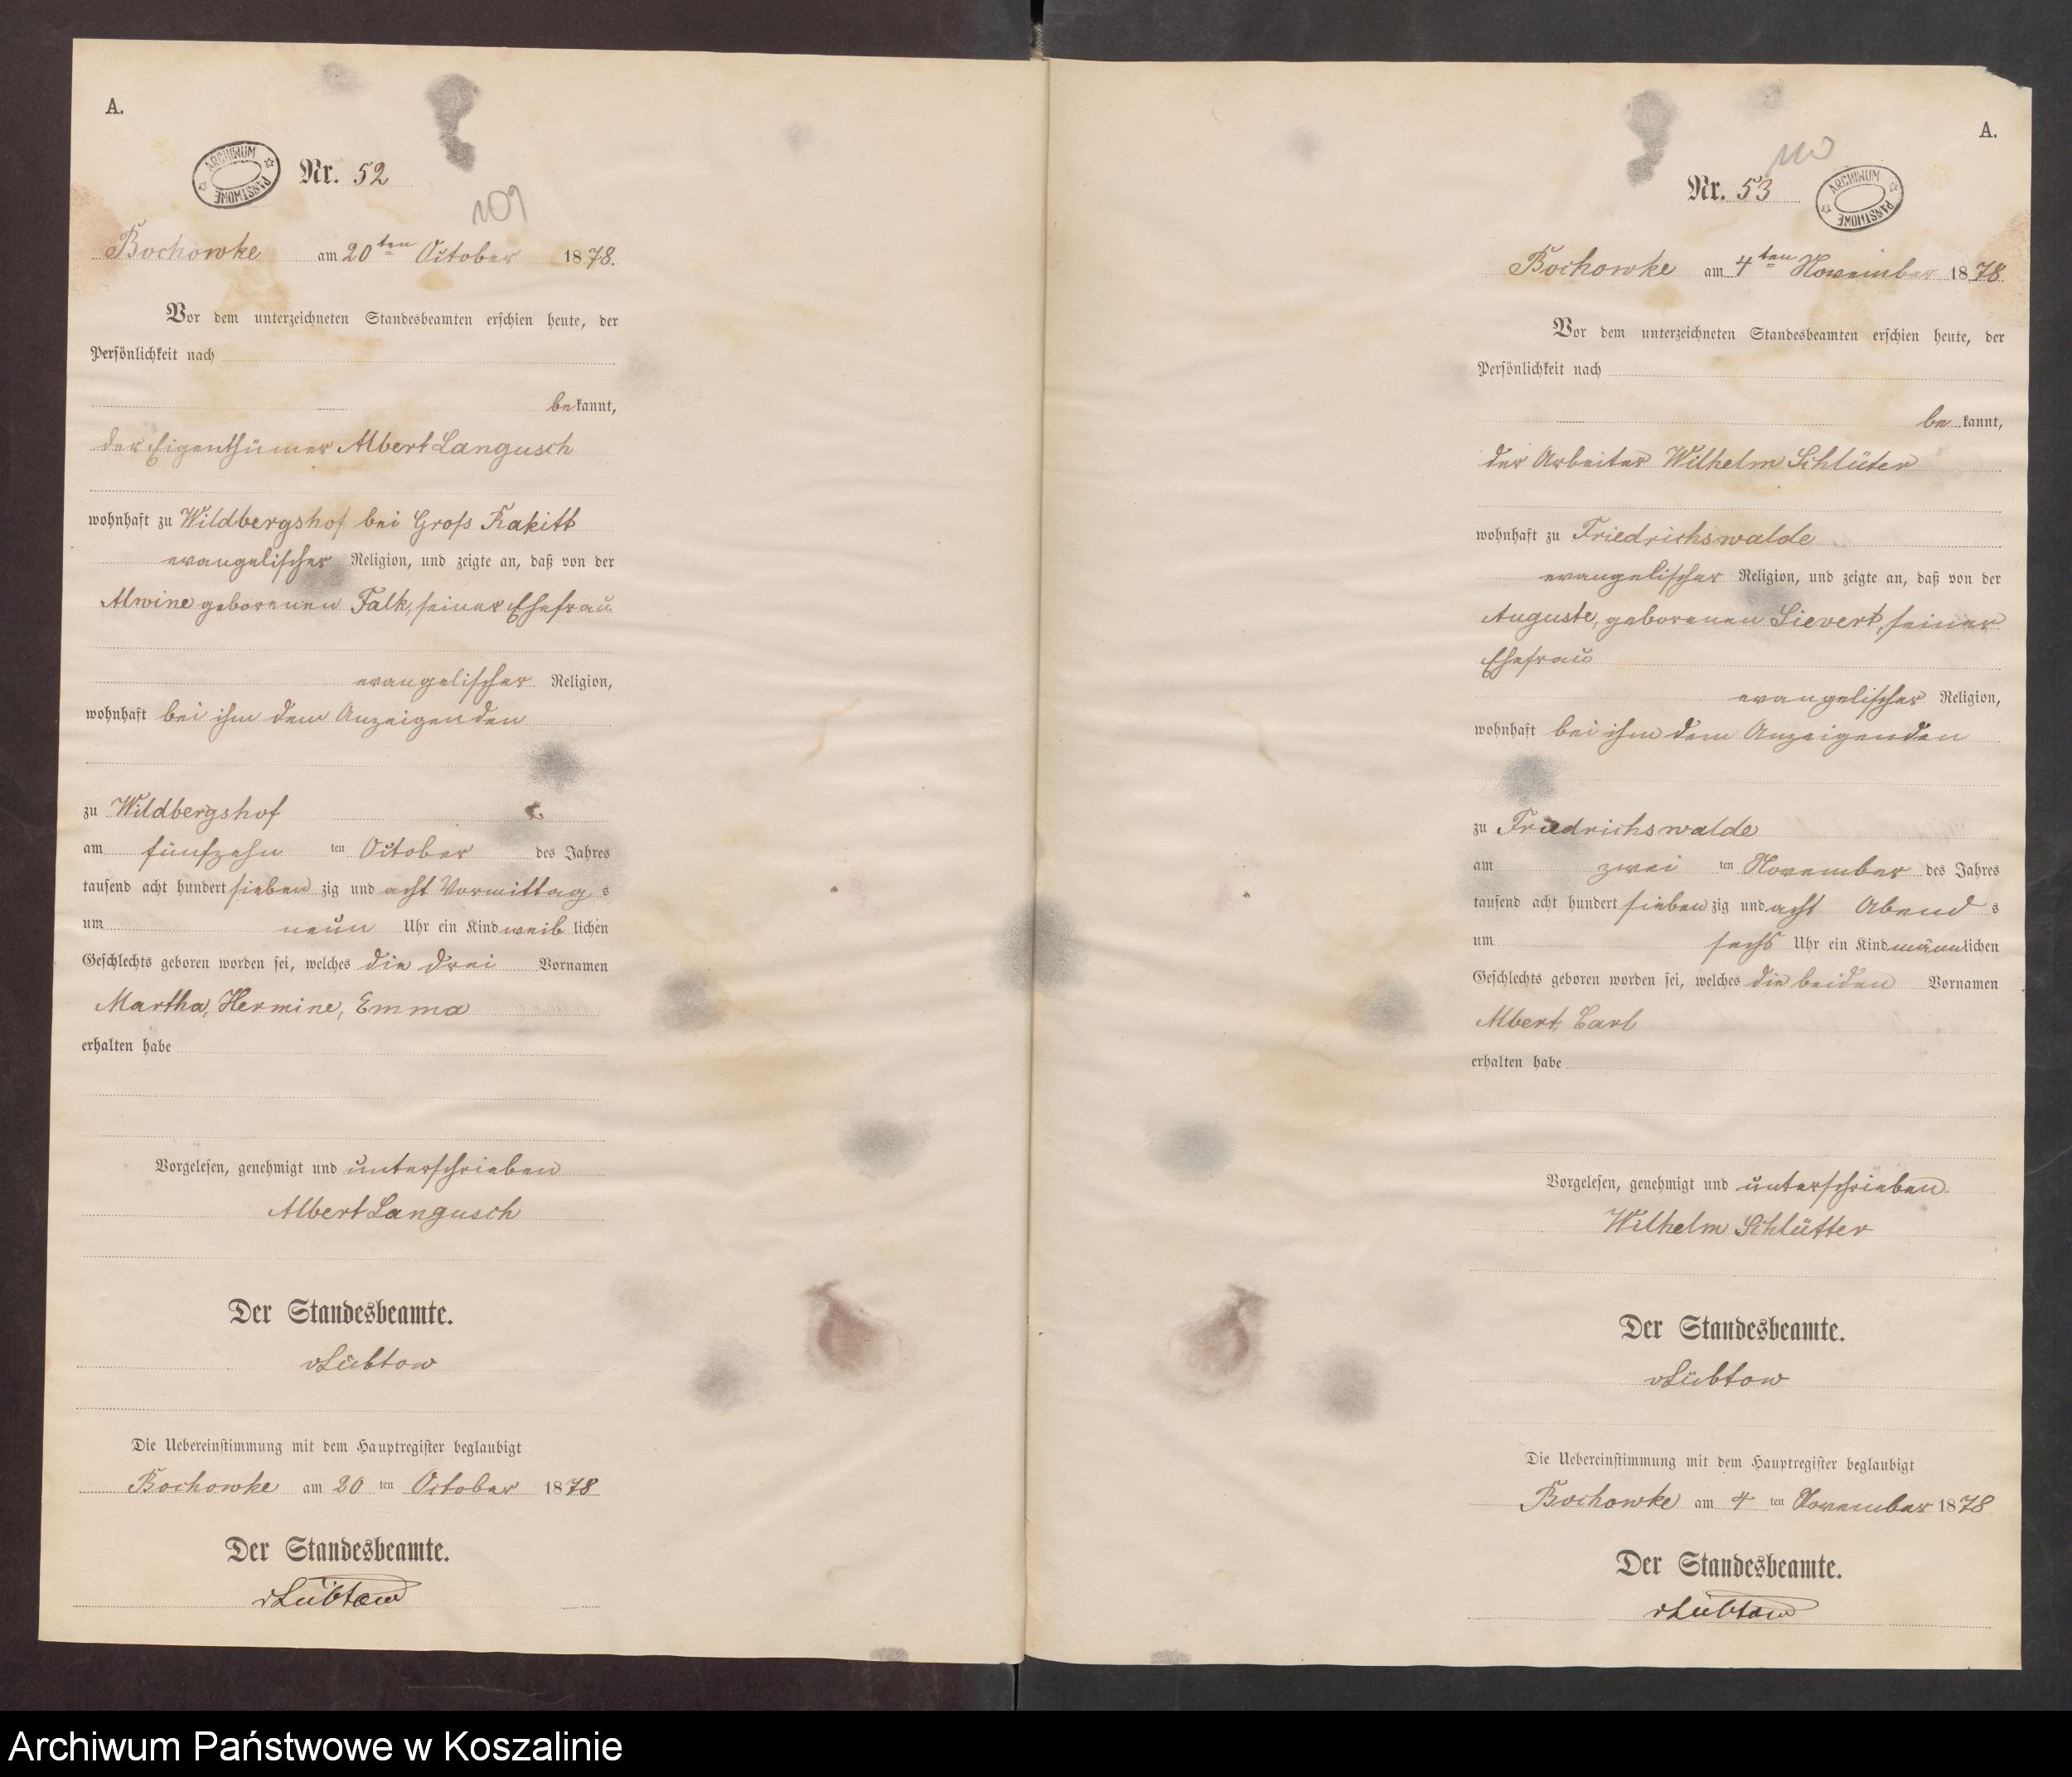 A.
ARCHIWUM PAŃSTWOWE
Nr. 52
109
Bochowke am 20ten October 1878.
Vor dem unterzeichneten Standesbeamten erschien heute, der
Persönlichkeit nach
bekannt,
der Eigenthümer Albert Langusch
wohnhaft zu Wildbergshof bei Groß Rakitt
evangelischer Religion, und zeigte an, daß von der
Alwine geborenen Falk, seiner Ehefrau
evangelischer Religion,
wohnhaft bei ihm dem Anzeigenden
zu Wildbergshof
am fünfzehn ten October des Jahres
tausend acht hundert sieben zig und acht Vormittag s
um neun Uhr ein Kind weib lichen
Geschlechts geboren worden sei, welches die drei Vornamen
Martha, Hermine, Emma
erhalten habe
Vorgelesen, genehmigt und unterschrieben
Albert Langusch
Der Standesbeamte.
vLübtow
Die Uebereinstimmung mit dem Hauptregister beglaubigt
Bochowke am 20 ten October 1878
Der Standesbeamte.
vLübtow
A.
110
Nr. 53
ARCHIWUM PAŃSTWOWE
Bochowke am 4ten November 1878
Vor dem unterzeichneten Standesbeamten erschien heute, der
Persönlichkeit nach
be kannt,
der Arbeiter Wilhelm Schlüter
wohnhaft zu Friedrichswalde
evangelischer Religion, und zeigte an, daß von der
Auguste, geborenen Sievert, seiner
Ehefrau
evangelischer Religion,
wohnhaft bei ihm dem Anzeigenden
zu Friedrichswalde
am zwei ten November des Jahres
tausend acht hundert sieben zig und acht Abend s
um sechs Uhr ein Kind männlichen
Geschlechts geboren worden sei, welches die beiden Vornamen
Albert Carl
erhalten habe
Vorgelesen, genehmigt und unterschrieben
Wilhelm Schlütter
Der Standesbeamte.
vLübtow
Die Uebereinstimmung mit dem Hauptregister beglaubigt
Bochowke am 4 ten November 1878
Der Standesbeamte.
vLübtow
Archiwum Państwowe w Koszalinie